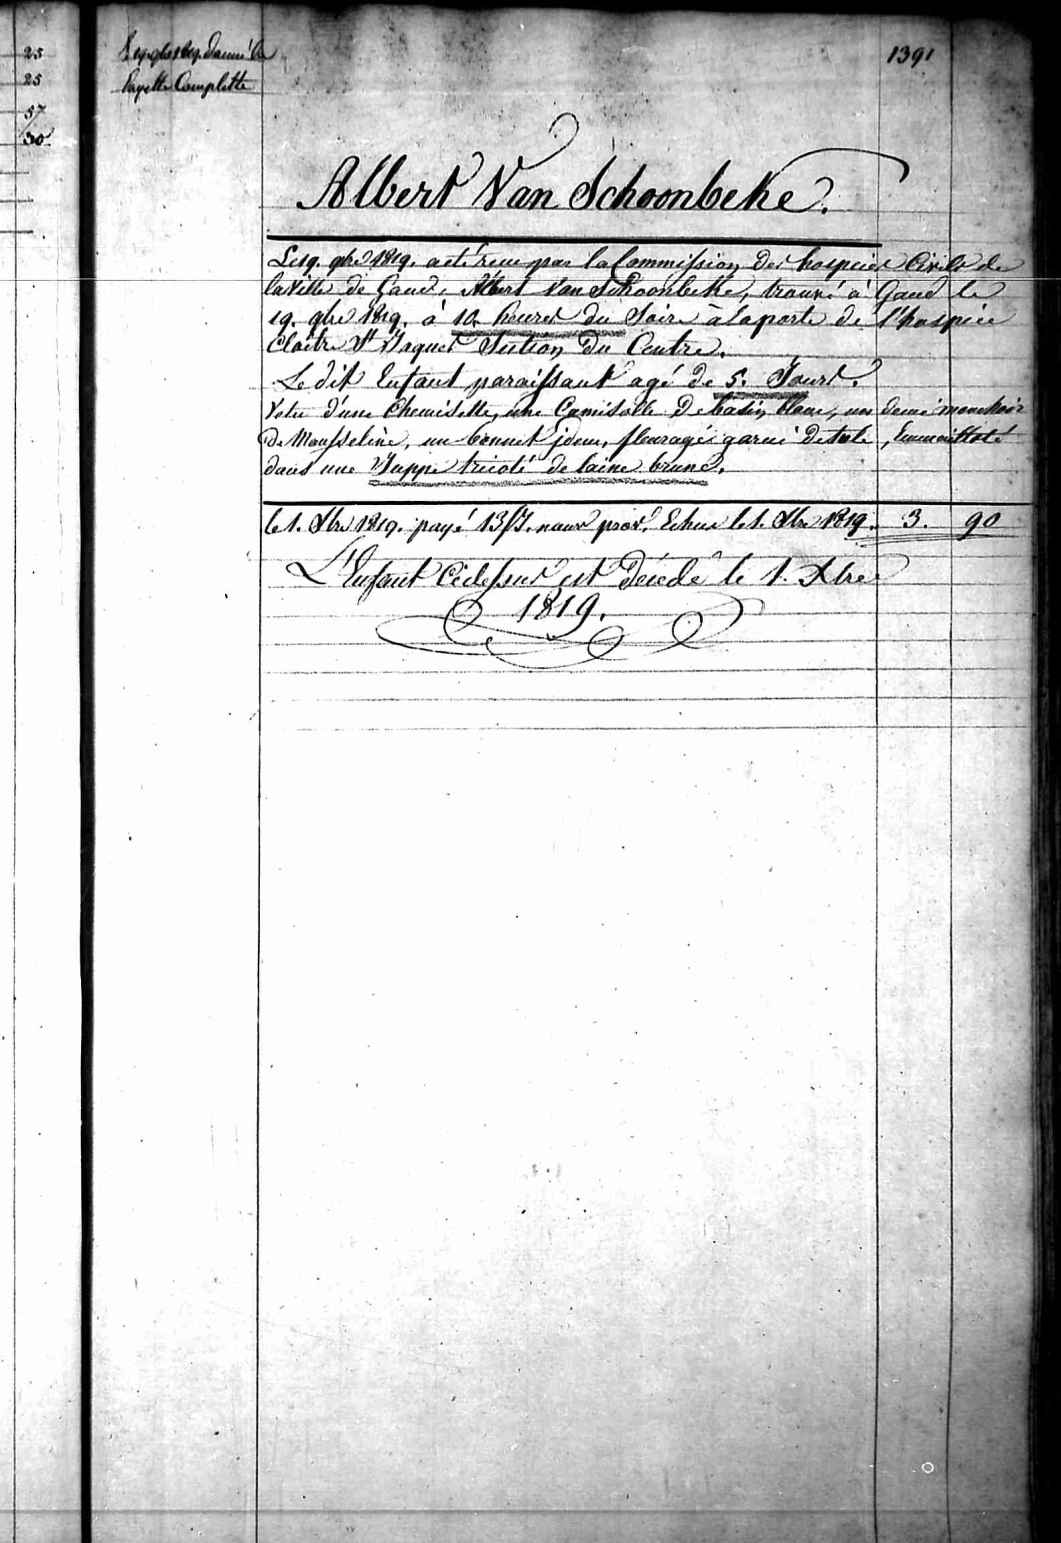 25
25
57
30
Le 19. 9bre 1819. donné la
layette Complette
1391
Albert Van Schoonbeke.
Le 19. 9bre 1819. a été reçu par la Commission des hospices Civils de
la Ville de Gand, Albert Van Schoonbeke, trouvé à Gand le
19. 9bre 1819. à 10 heures du Soire à la porte de l'hospice
Cloitre St Jaques Section du Centre.
Le dit Enfant paraissant agé de 5. Jours.
Vetu d'une Chemisette, une Camisolle De basin blanc, un demi mouchoir
de Mousseline, un bonnet idem, fleuragés garni De tule, Emmailloté
dans une Juppe tricoté de laine brune.
le 1. Xbre 1819. payé 13/7. pour Echu le 1. Xbre 1819. 3. 90
L'Enfant Cidessus est Décedé le 1. Xbre
1819.